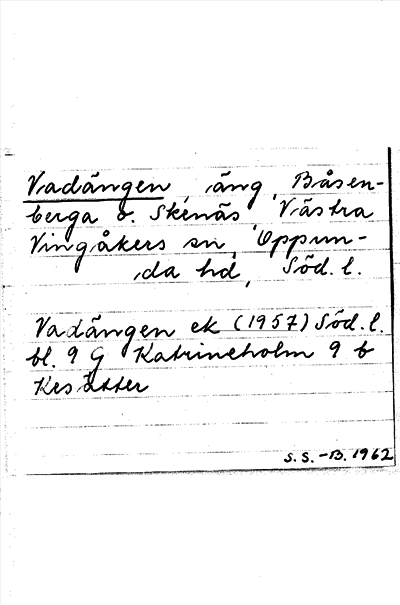 Vadängen, äng, Båsen-
berga o. Skenäs, Västra
Vingåkers sn, Oppun-
da hd, Söd. l.
Vadängen ek (1957) Söd. l.
bl. 9 G Katrineholm 9 b
Kesätter
S. S. -B. 1962